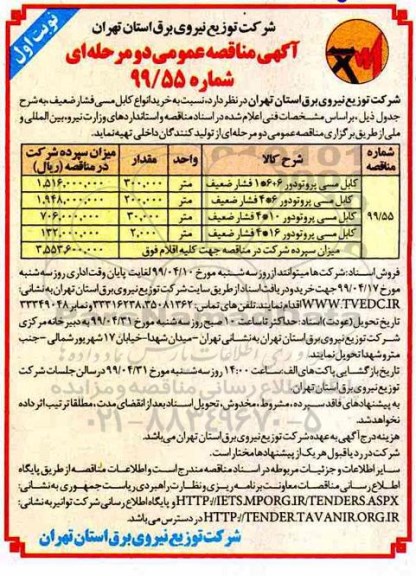 نوبت اول
شرکت توزیع نیروی برق استان تهران
آگهی مناقصه عمومی دو مرحله ای
شماره ۹۹/۵۵
شرکت توزیع نیروی برق استان تهران در نظر دارد، نسبت به خرید انواع کابل مسی فشار ضعیف، به شرح
جدول ذیل، بر اساس مشخصات فنی اعلام شده در اسناد مناقصه و استانداردهای وزارت نیرو، بین المللی و
ملی از طریق برگزاری مناقصه عمومی دو مرحله ای از تولید کنندگان داخلی تهیه نماید.
شماره مناقصه | شرح کالا | واحد | مقدار | میزان سپرده شرکت در مناقصه (ریال)
۹۹/۵۵ | کابل مسی پروتودور ۶*۱ فشار ضعیف | متر | ۳۰۰,۰۰۰ | ۱,۵۱۶,۰۰۰,۰۰۰
کابل مسی پروتودور ۶*۴ فشار ضعیف | متر | ۲۰۰,۰۰۰ | ۱,۹۴۸,۰۰۰,۰۰۰
کابل مسی پروتودور ۱۰*۴ فشار ضعیف | متر
کابل مسی پروتودور ۱۶*۴ فشار ضعیف | متر | ۲,۰۰۰ | ۱۳۲,۰۰۰,۰۰۰
میزان سپرده شرکت در مناقصه جهت کلیه اقلام فوق | ۳,۵۵۳,۶۰۰,۰۰۰
فروش اسناد: شرکت ها میتوانند از روز سه شنبه مورخ ۹۹/۰۴/۱۰ لغایت پایان وقت اداری روز سه شنبه
مورخ ۹۹/۰۴/۱۷ جهت خرید و دریافت اسناد از طریق سایت شرکت توزیع نیروی برق استان تهران به نشانی:
WWW.TVEDC.IR اقدام نمایند. تلفن های تماس: ۳۵۰۸۱۳۶۲، ۳۳۳۱۶۲۳۸ و نمابر ۳۳۳۴۹۰۴۸
تاریخ تحویل (عودت) اسناد: حداکثر تا ساعت ۱۰ صبح روز سه شنبه مورخ ۹۹/۰۴/۳۱ به دبیرخانه مرکزی
شرکت توزیع نیروی برق استان تهران به نشانی تهران - میدان شهدا - خیابان ۱۷ شهریور شمالی - جنب
مترو شهدا تحویل نمایند.
تاریخ بازگشایی پاکت های الف ساعت ۱۴:۰۰ روز سه شنبه مورخ ۹۹/۰۴/۳۱ در سالن جلسات شرکت
توزیع نیروی برق استان تهران.
به پیشنهادهای فاقد سپرده، مشروط، مخدوش، تحویل اسناد بعد از انقضای مدت، مطلقا ترتیب اثر داده
نخواهد شد.
هزینه درج آگهی به عهده شرکت توزیع نیروی برق استان تهران می باشد.
شرکت در رد یا قبول هر یک از پیشنهادها مختار است.
سایر اطلاعات و جزئیات مربوطه در اسناد مناقصه مندرج است و اطلاعات مناقصه از طریق پایگاه
اطلاع رسانی مناقصات معاونت برنامه ریزی و نظارت راهبردی ریاست جمهوری به نشانی:
HTTP://IETS.MPORG.IR/TENDERS.ASPX و پایگاه اطلاع رسانی شرکت توانیر به نشانی:
HTTP://TENDER.TAVANIR.ORG.IR در دسترس می باشد.
شرکت توزیع نیروی برق استان تهران